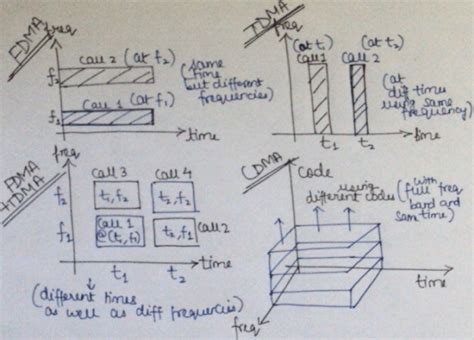 FDMA
freq
call 2 (at f2)
f2
(same
time
but different
frequencies)
call 1 (at f1)
f1
time
TDMA
freq
(at t1)
call 1
(at t2)
call 2
(at
diff times
using same
frequency)
t1
t2
time
FDMA
+TDMA
freq
call 3
call 4
f2
t1, f2
t2, f2
f1
call 1
@(t1, f1)
t2, f1
call 2
t1
t2
time
(different times
as well as diff frequencies)
CDMA
Code
using
different codes
(with
full freq
band and
same time)
time
freq